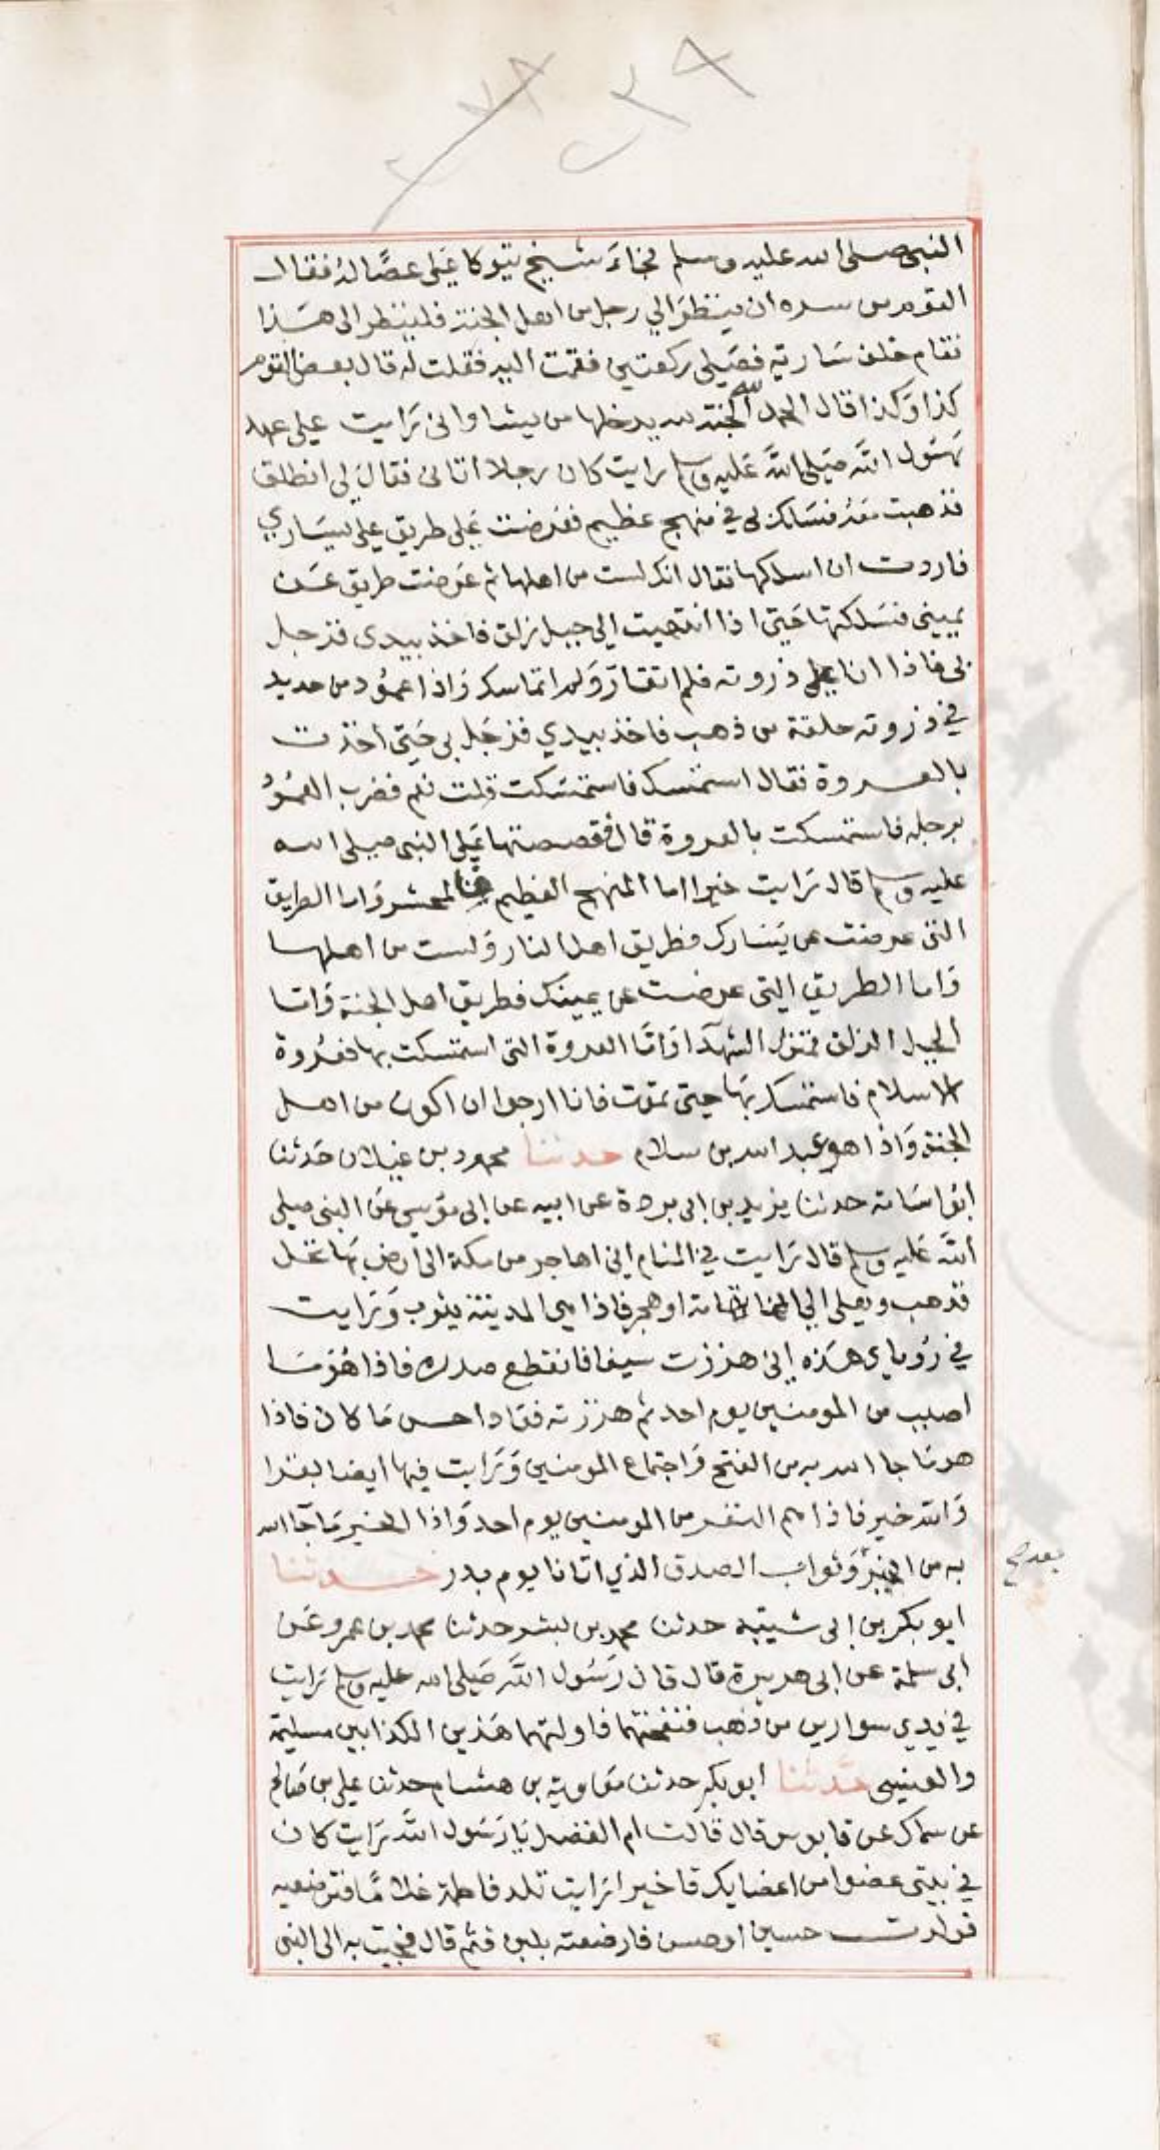 ٢٧٨ ٢٣٩
النبي صلى الله عليه وسلم فجاء شيخ يتوكا على عصا له فقال
القوم من سره ان ينظر الي رجل من اهل الجنة فلينظر الى هذا
فقام خلف سارية فصلى ركعتين فقمت اليه فقلت له قال بعض القوم
كذا وكذا قال الحمد لله الجنة لله يدخلها من يشا واني رايت على عهد
رسول الله صلى الله عليه وسلم رايت كان رجلا اتاني فقال لي انطلق
فذهبت معه فسلك لي في منهج عظيم فعرضت على طريق على يساري
فاردت ان اسلكها فقال انك لست من اهلها ثم عرضت طريق عن
يميني فسلكتها حتى اذا انتهيت الي جبل زلق فاخذ بيدي فزجل
بي فاذا انا على ذروته فلم اتقار ولم اتماسك واذا عمود من حديد
في ذروته حلقة من ذهب فاخذ بيدي فزجل بي حتى اخذت
بالعروة فقال استمسك فاستمسكت قلت نعم فضرب العمود
برجله فاستمسكت بالعروة قال فقصصتها على النبي صلى الله
عليه وسلم قال رايت خيرا اما المنهج العظيم فالمحشر واما الطريق
التي عرضت عن يسارك فطريق اهل النار ولست من اهلها
واما الطريق التي عرضت عن يمينك فطريق اهل الجنة واما
الجبل الزلق فمنزل الشهدا واما العروة التي استمسكت بها فعروة
الاسلام فاستمسك بها حتى تموت فانا ارجوا ان اكون من اهل
الجنة واذا هو عبد الله بن سلام حدثنا محمود بن غيلان حدثنا
ابو اسامة حدثنا بريد بن ابي بردة عن ابيه عن ابي موسي عن النبي صلى
الله عليه وسلم قال رايت في المنام اني اهاجر من مكة الى ارض بها نخل
فذهب وهلى الي انها اليمامة او هجر فاذا هي المدينة يثرب ورايت
في رؤياي هذه اني هززت سيفا فانقطع صدره فاذا هو ما
اصيب من المومنين يوم احد ثم هززته فعاد احسن ما كان فاذا
هو ما جا الله به من الفتح واجتماع المومنين ورايت فيها ايضا بقرا
والله خير فاذا هم النفر من المومنين يوم احد واذا الخير ما جا الله
به من الخير وثواب الصدق الذي اتانا يوم بدر حدثنا
بعد صح
ابو بكر بن ابي شيبة حدثنا محمد بن بشر حدثنا محمد بن عمرو عن
ابي سلمة عن ابي هريرة قال قال رسول الله صلى الله عليه وسلم رايت
في يدي سوارين من ذهب فنفختهما فاولتهما هذين الكذابين مسيلمة
والعنسي حدثنا ابو بكر حدثنا معاوية بن هشام حدثنا علي بن صالح
عن سماك عن قابوس قال قالت ام الفضل يا رسول الله رايت كان
في بيتي عضوا من اعضايك قا خيرا رايت تلد فاطمة غلاما فترضعيه
فولدت حسين او حسن فارضعته بلبن قثم قال فجيت به الى النبي